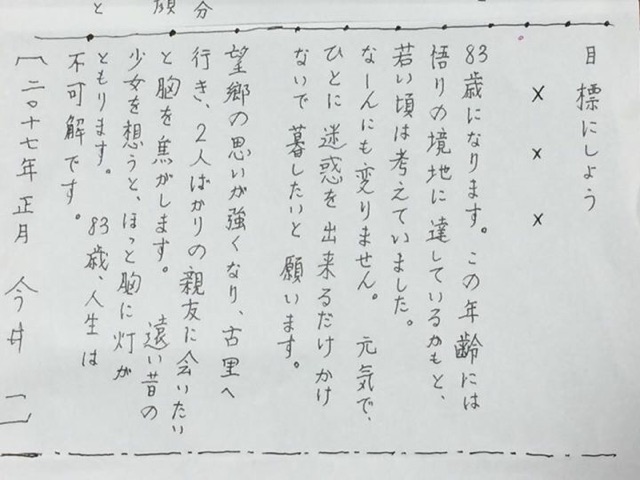 分
と
目標にしよう
× × ×
83歳になります。この年齢には
悟りの境地に達しているかもと、
若い頃は考えていました。
なーんにも変りません。 元気で、
ひとに 迷惑を 出来るだけ かけ
ないで 暮したいと 願います。
望郷の思いが強くなり、古里へ
行き、2人ばかりの親友に会いたい
と胸を焦がします。 遠い昔の
少女を想うと、ほっと胸に灯が
ともります。 83歳、人生は
不可解です。
〔二〇十七年 正月 今井 〕